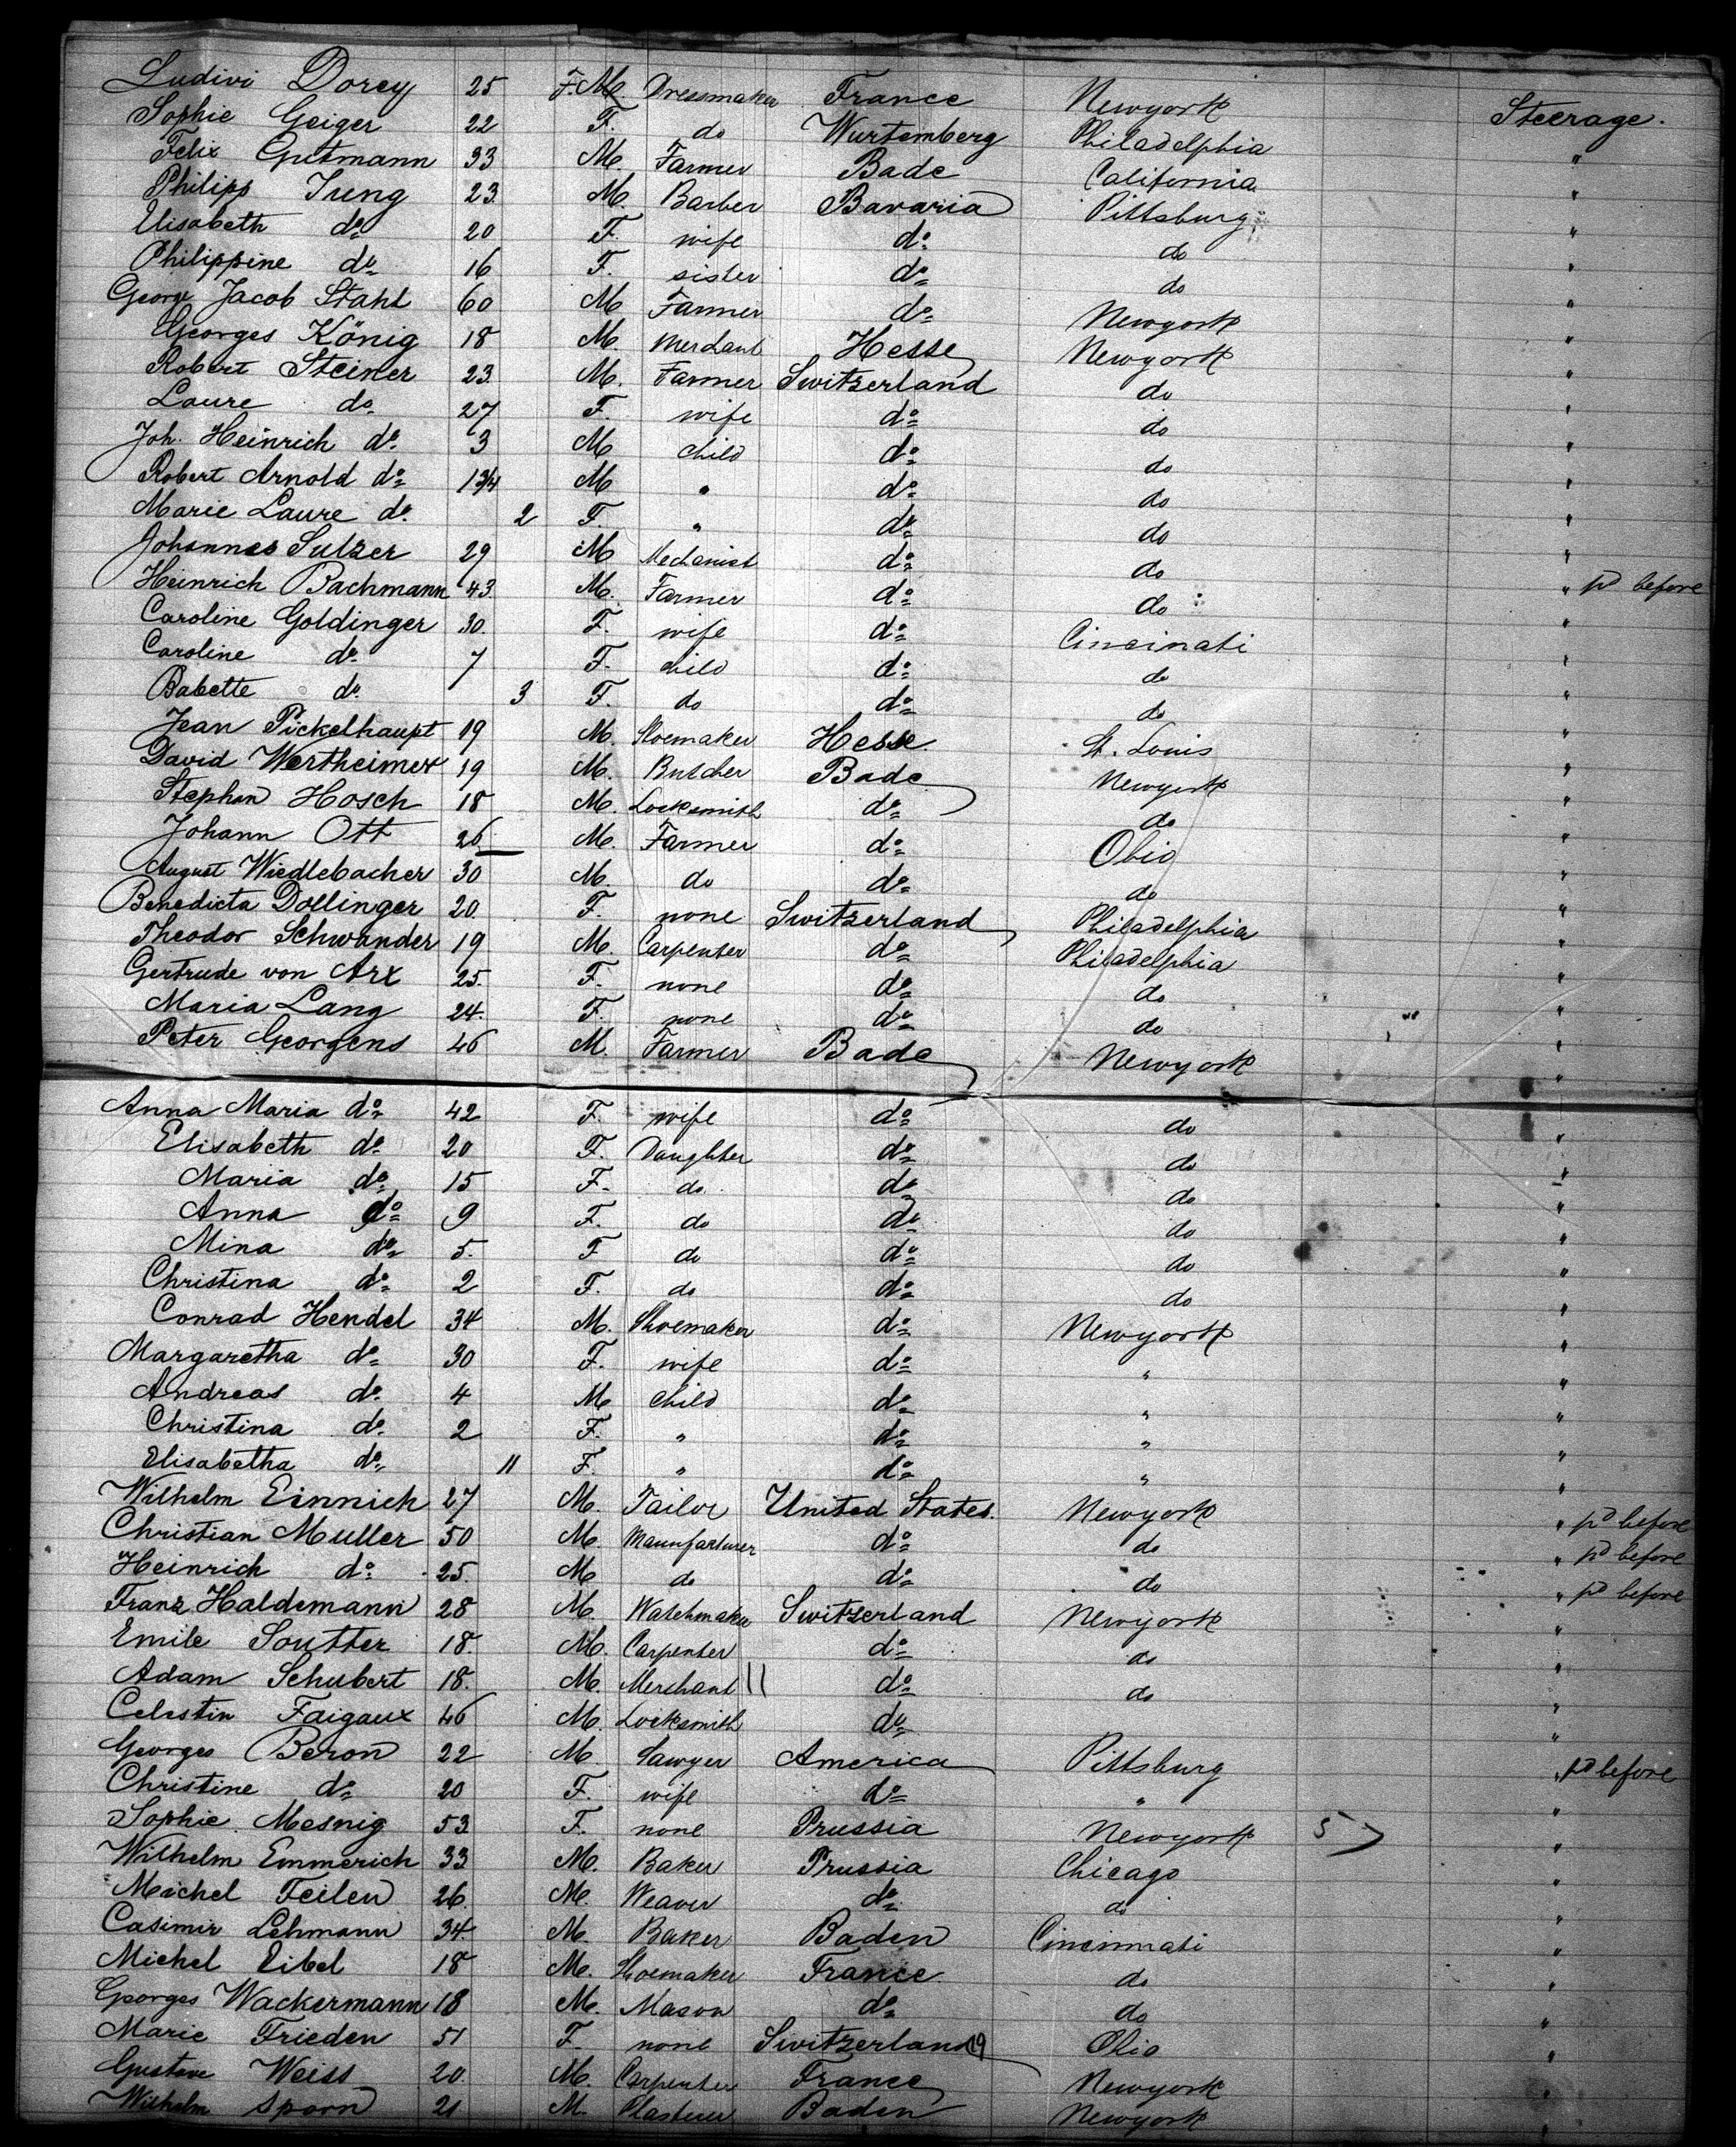 Ludivi Dorey 25 F. M. Dressmaker France Newyork Steerage.
Sophie Geiger 22 F. do Wurtemberg Philadelphia "
Felix Gutmann 33 M. Farmer Bade California "
Philipp Jung 23. M. Barber Bavaria Pittsburg "
Elisabeth do 20 F. wife do do "
Philippine do 16 F. sister do do "
George Jacob Stahl 60 M Farmer do Newyork "
Georges König 18 M. Merchant Hesse Newyork "
Robert Steiner 23. M. Farmer Switzerland do "
Laure do 27 F. wife do do "
Joh. Heinrich do 3 M child do do "
Robert Arnold do 1 3/4 M " do do "
Marie Laure do. 2 F. " do do "
Johannes Sulzer 29 M Mechanist do do "
Heinrich Bachmann 43 M. Farmer do do " pd before
Caroline Goldinger 30. F. wife do Cincinati "
Caroline do 7 F. child do do "
Babette do. 3 F. do do do "
Jean Pickelhaupt 19 M. Shoemaker Hesse St. Louis "
David Wertheimer 19 M. Butcher Bade Newyork "
Stephan Hosch 18 M. Locksmith do do "
Johann Ott 26 M. Farmer do Ohio "
August Wiedlebacher 30 M. do do do "
Benedicta Dollinger 20. F. none Switzerland Philadelphia "
Theodor Schwander 19 M. Carpenter do Philadelphia "
Gertrude von Arx 25. F. none do do "
Maria Lang 24. F. none do do "
Peter Georgens 46 M. Farmer Bade Newyork "
Anna Maria do 42 F. wife do do "
Elisabeth do 20 F. Daughter do do "
Maria do 15 F. do do do "
Anna do 9 F. do do do "
Mina do 5. F do do do "
Christina do 2 F. do do do "
Conrad Hendel 34 M. Shoemaker do Newyork "
Margaretha do 30 F. wife do " "
Andreas do 4 M child do " "
Christina do 2 F. " do " "
Elisabetha do 11 F. " do " "
Wilhelm Einnich 27 M. Tailor United States. Newyork " pd before
Christian Muller 50 M Manufacturer do do " pd before
Heinrich do 25. M do do do " pd before
Franz Haldemann 28 M. Watchmaker Switzerland Newyork "
Emile Soutter 18. M. Carpenter do do "
Adam Schubert 18. M. Merchant do do "
Celestin Faigaux 46 M. Locksmith do "
Georges Beron 22 M Sawyer America Pittsburg " pd before
Christine do 20 F. wife do " "
Sophie Mesnig 53 F. none Prussia Newyork 5 "
Wilhelm Emmerich 33 M. Baker Prussia Chicago "
Michel Feilen 26. M. Weaver do do "
Casimir Lehmann 34. M. Baker Baden Cincinnati "
Michel Eibel 18 M. Shoemaker France do "
Georges Wackermann 18 M. Mason do do "
Marie Frieden 51 F. none Switzerland 19 Ohio "
Gustave Weiss 20. M. Carpenter France Newyork "
Wilhelm Sporn 21 M. Plasterer Baden Newyork "